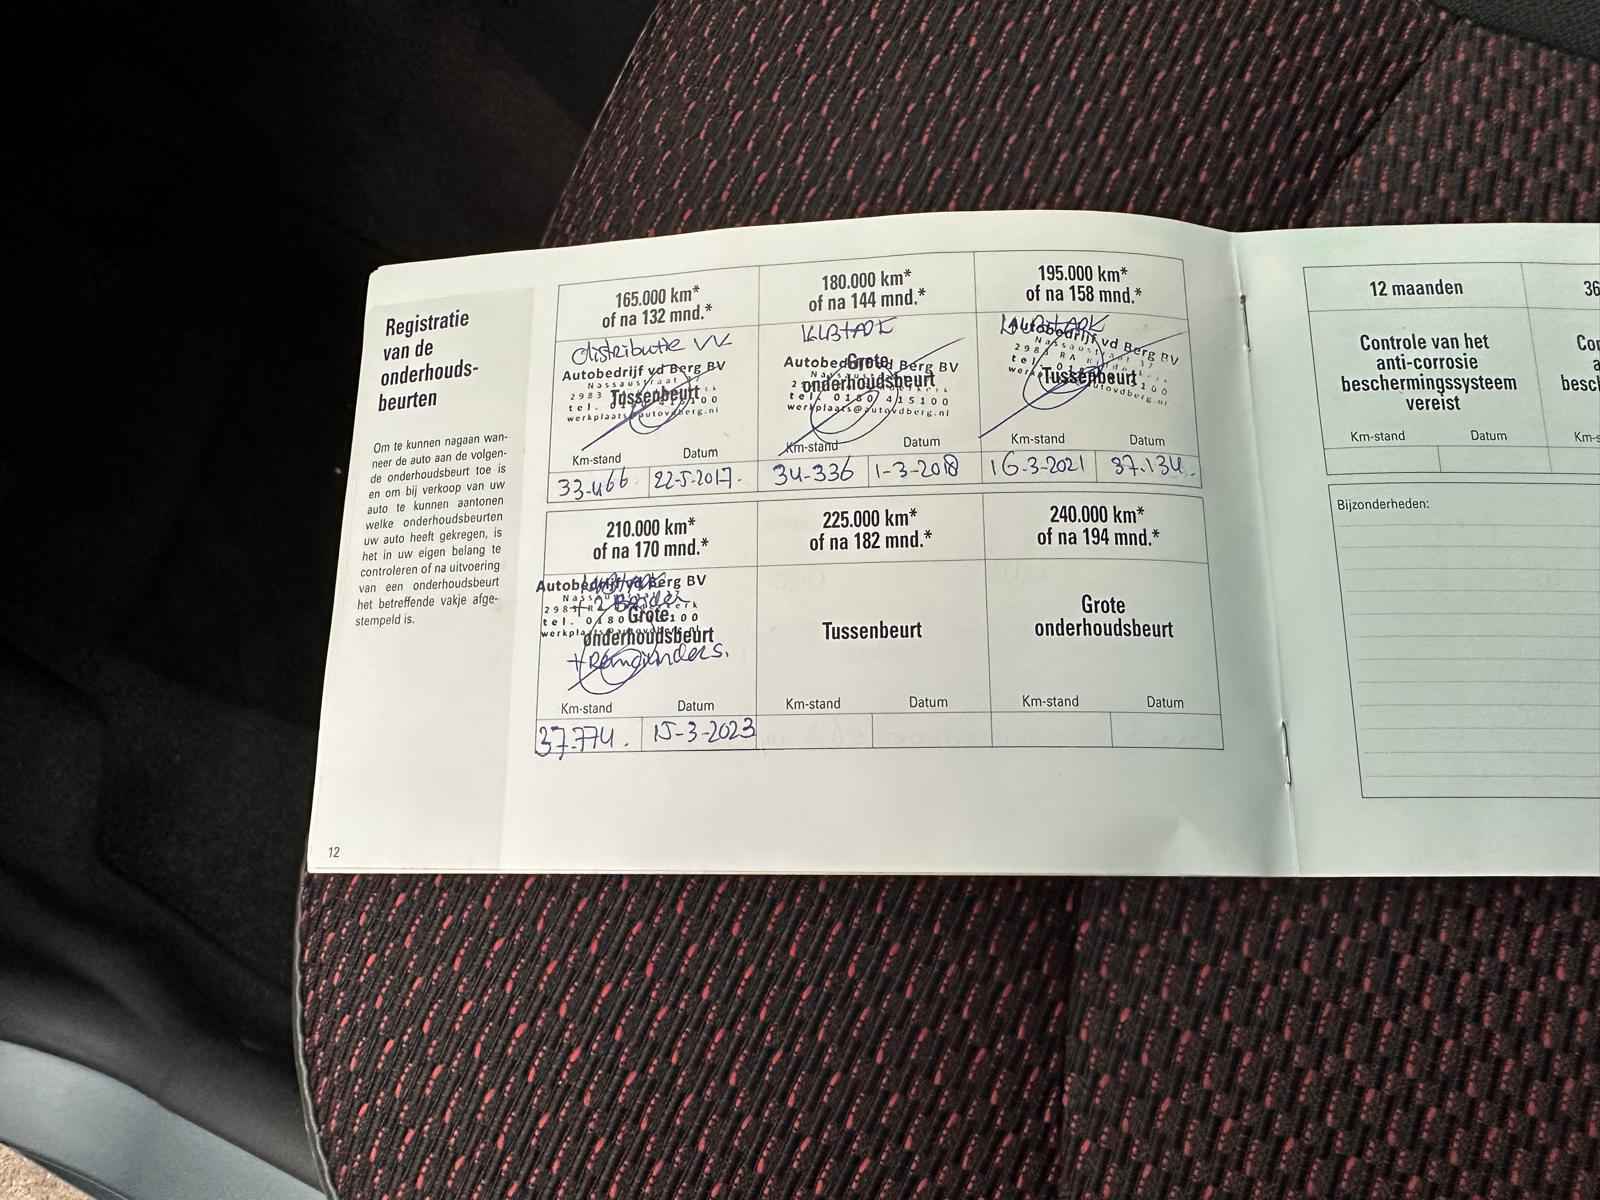 Registratie
van de
onderhouds-
beurten
Om te kunnen nagaan wan-
neer de auto aan de volgen-
de onderhoudsbeurt toe is
en om bij verkoop van uw
auto te kunnen aantonen
welke onderhoudsbeurten
uw auto heeft gekregen, is
het in uw eigen belang te
controleren of na uitvoering
van een onderhoudsbeurt
het betreffende vakje afge-
stempeld is.
12
165.000 km*
of na 132 mnd.*
distributie VV
Autobedrijf vd Berg BV
Nassaustraat
2983
Tussenbeurt
tel. 100
werkplaats@autovdberg.nl
Km-stand Datum
33-466 22-5-2017.
180.000 km*
of na 144 mnd.*
Autobedrijf vd Berg BV
Grote
onderhoudsbeurt
tel. 0180 415100
werkplaats@autovdberg.nl
Km-stand Datum
34-336 1-3-2018
195.000 km*
of na 158 mnd.*
Autobedrijf vd Berg BV
Nassaustraat 37
2983 RA
Tussenbeurt
Km-stand Datum
16-3-2021 37.134.
210.000 km*
of na 170 mnd.*
Autobedrijf vd Berg BV
Grote
tel. 0180 100
onderhoudsbeurt
Km-stand Datum
37.774. 15-3-2023
225.000 km*
of na 182 mnd.*
Tussenbeurt
Km-stand Datum
240.000 km*
of na 194 mnd.*
Grote
onderhoudsbeurt
Km-stand Datum
12 maanden
Controle van het
anti-corrosie
beschermingssysteem
vereist
Km-stand Datum
36
Bijzonderheden: